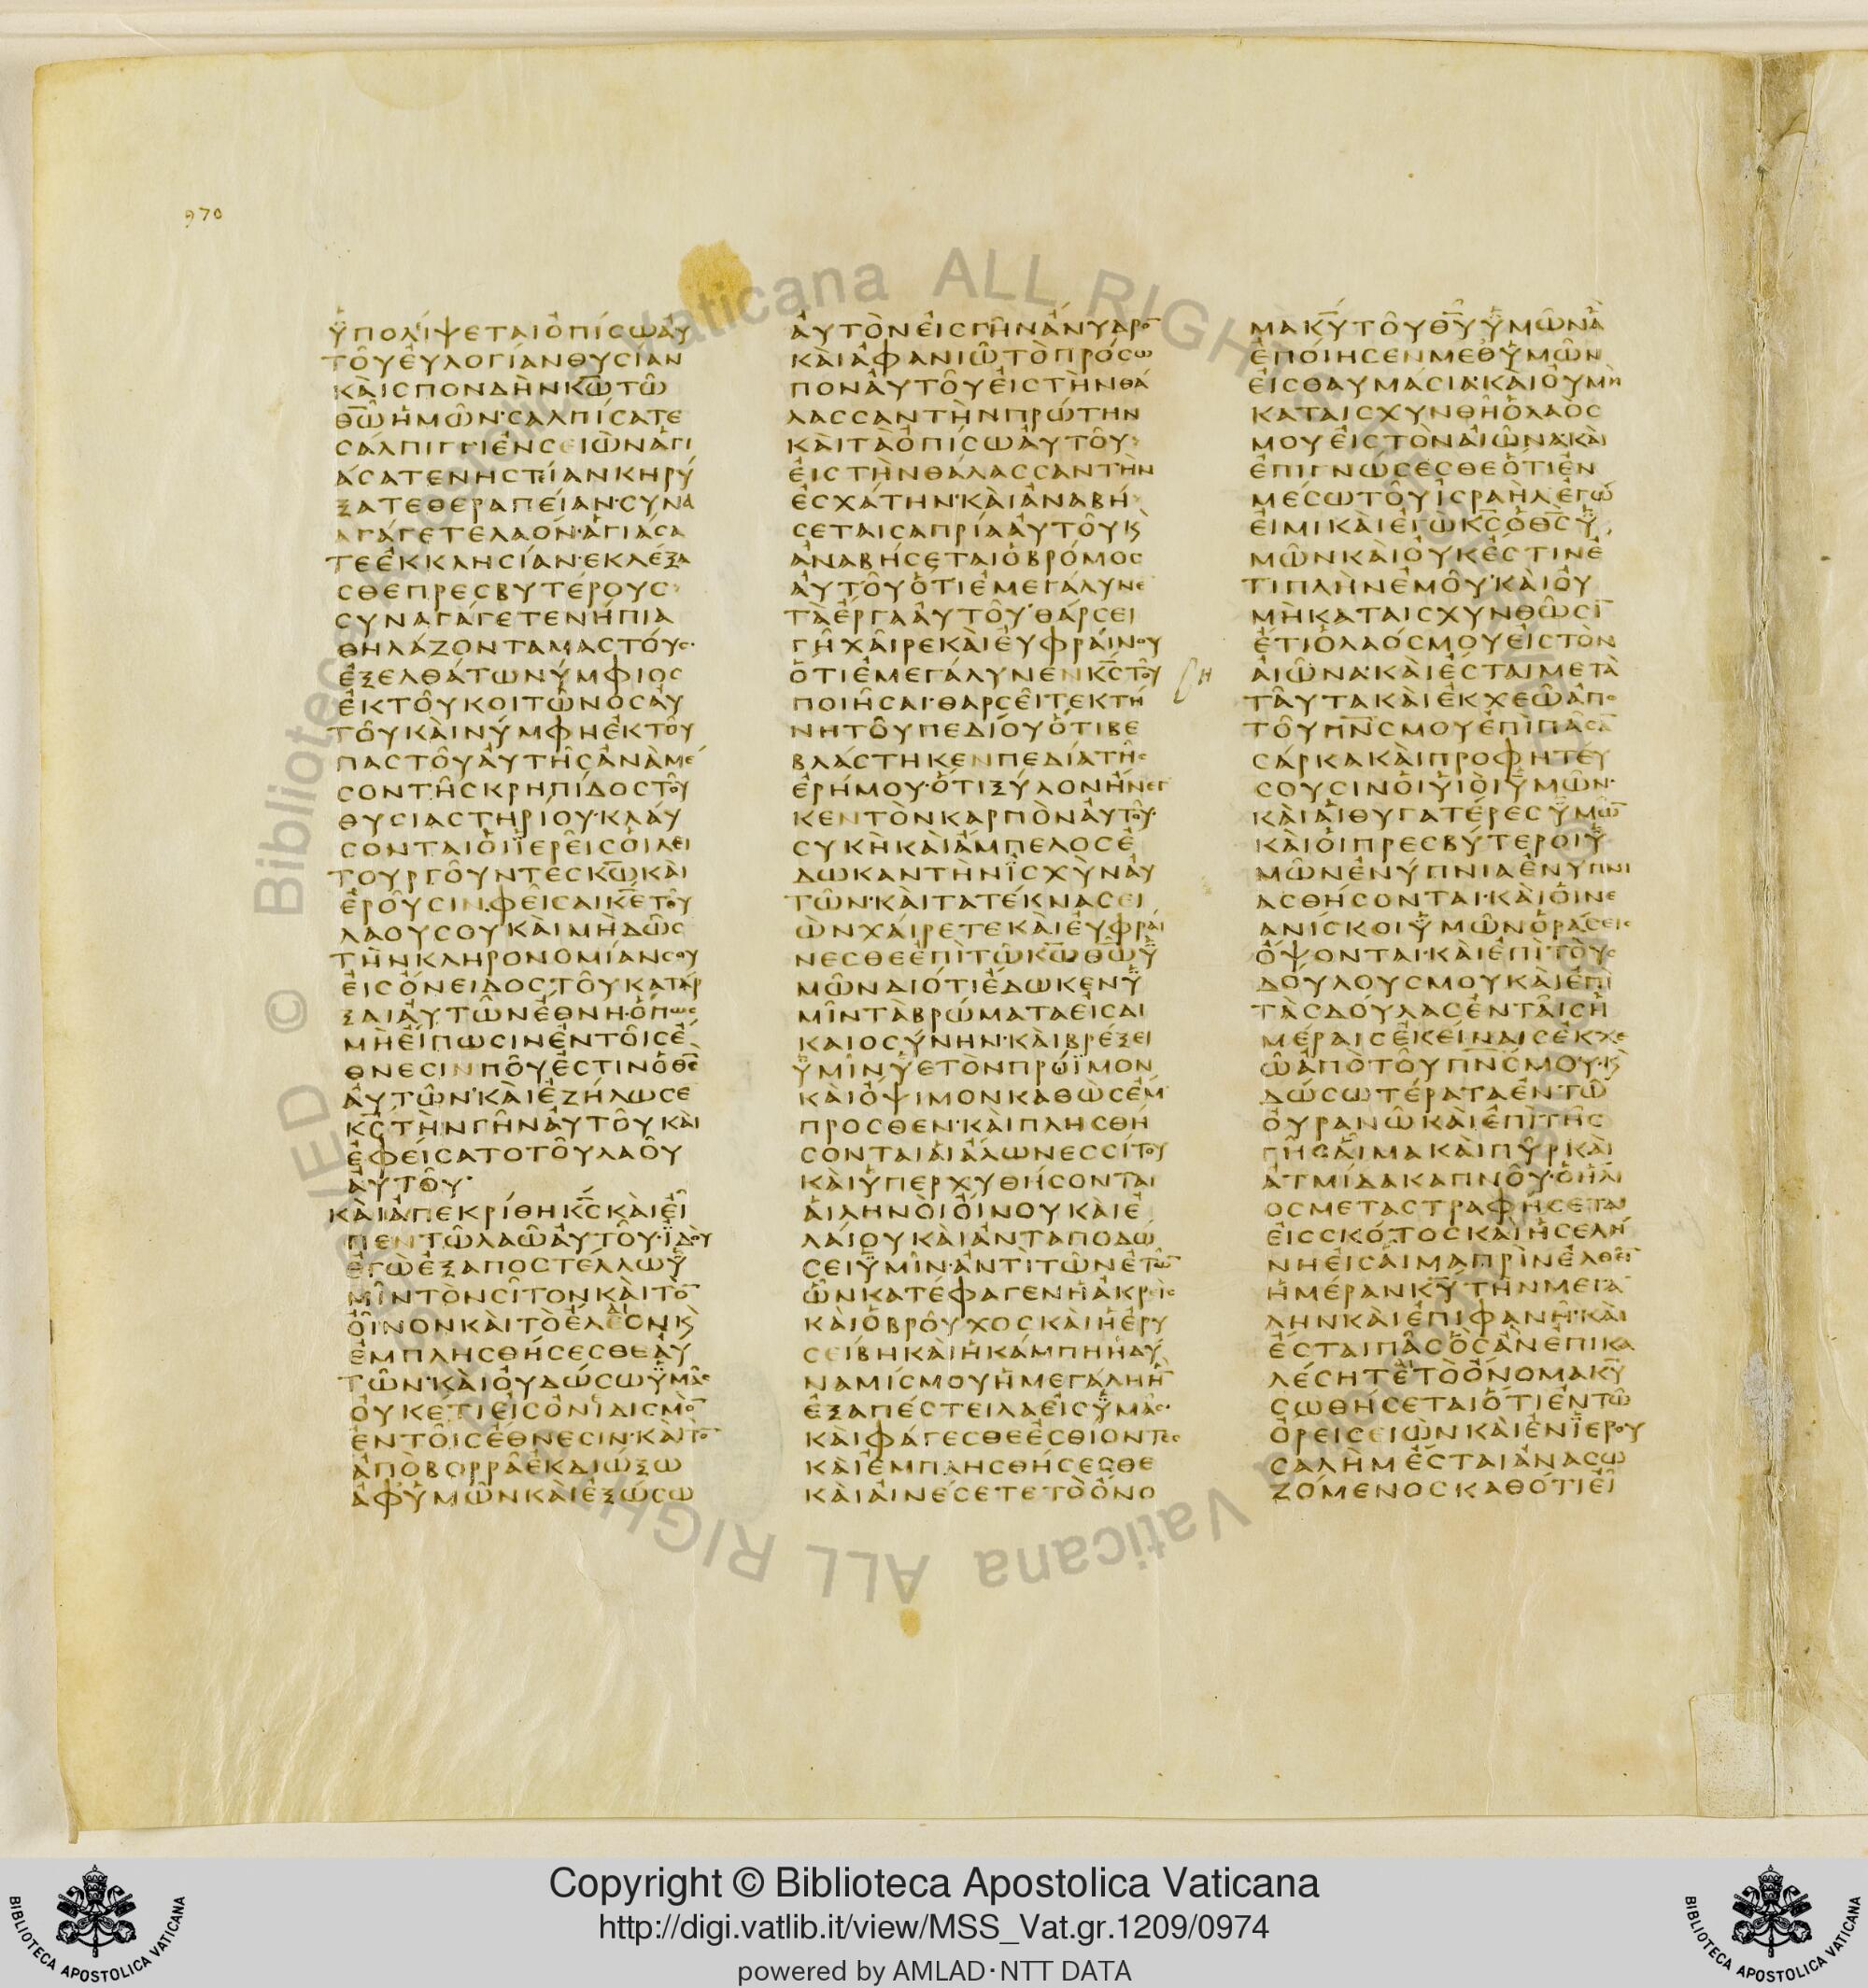 970
ὑπολίψεταιὀπίσωαὐ
τοῦεὐλογίανθυσίαν
καὶσπονδὴνκ̅ω̅τῶ
θ̅ω̅ἡμῶν·σαλπίσατε
σάλπιγγιἐνσειὼνἁγι
άσατενηστίανκηρύ
ξατεθεραπείαν·συνα
γάγετελαόν·ἁγιάσα
τεἐκκλησίαν·ἐκλέξα
σθεπρεσβυτέρους
συναγάγετενήπια
θηλάζονταμαστούς·
ἐξελθάτωνύμφιος
ἐκτοῦκοιτῶνοσαὐ
τοῦκαὶνύμφηἐκτοῦ
παστοῦαὐτῆσἀνὰμέ
σοντῆσκρηπίδοστοῦ
θυσιαστηρίου·κλαύ
σονταιοἱϊερεῖσοἱλει
τουργοῦντεσκ̅ω̅καὶ
ἐροῦσιν·φεῖσαικ̅ε̅τοῦ
λαουσουκαὶμὴδῶσ
τὴνκληρονομίανσου
εἰσὄνειδοστοῦκατάρ
ξαιαὐτῶνἔθνη·ὅπως
μὴεἴπωσινἐντοῖσἔ
θνεσινποῦἐστινὁθ̅σ̅
αὐτῶν·καὶἐζήλωσε
κ̅σ̅τὴνγῆναὐτοῦκαὶ
ἐφείσατοτοῦλαοῦ
αὐτοῦ·
καὶἀπεκρίθηκ̅σ̅καὶεἶ
πεντῶλαῶαὐτοῦ·ἰδοὺ
ἐγὼἐξαποστέλλωὑ
μῖντὸνσῖτονκαὶτὸ̅
οἶνονκαὶτὸἔλαιονκ̀
ἐμπλησθήσεσθεαὐ
τῶν·καὶοὐδώσωὑμᾶσ
οὐκέτιεἰσὀνιδισμὸ̅
ἐντοῖσἔθνεσιν·καὶτὸ̅
ἀπὸβορρᾶἐκδιώξω
ἀφὑμῶνκαὶἐξώσω
αὐτὸνεἰσγῆνἄνυδρο̅
καὶἀφανιῶτὸπρόσω
ποναὐτοῦεἰστὴνθά
λασσαντὴνπρώτην
καὶτὰὀπίσωαὐτοῦ
εἰστὴνθάλασσαντὴν
ἐσχάτην·καὶἀναβή
σεταισαπρίααὐτοῦκ̀
ἀναβήσεταιὁβρόμοσ
αὐτοῦὅτιἐμεγάλυνε
τὰἔργααὐτοῦ·θάρσει
γῆχαῖρεκαὶεὐφραίνου
ὅτιἐμεγάλυνενκ̅σ̅τοῦ
ποιῆσαι·θαρσεῖτεκτή
νητοῦπεδίουὅτιβε
βλάστηκενπεδίατῆσ
ἐρήμου·ὅτιξύλονἤνεγ
κεντὸνκαρπὸναὐτοῦ·
συκῆκαὶἄμπελοσἔ
δωκαντὴνἰσχὺναὐ
τῶν·καὶτατέκνασει
ὼνχαίρετεκαὶεὐφραί
νεσθεἐπὶτῶκ̅ω̅θ̅ω̅ὑ
μῶνδιότιἔδωκενὑ
μῖντὰβρώματαεἰσδι
καιοσύνην·καὶβρέξει
ὑμῖνὑετὸνπρώϊμον
καὶὄψιμονκαθὼσἔμ
προσθεν·καὶπλησθή
σονταιαἱἅλωνεσσίτου
καὶὑπερχυθήσονται
αἱληνοὶοἴνουκαὶἐ
λαίουκαὶἀνταποδώ
σειὑμῖν·ἀντὶτῶνἐτῶ̅
ὧνκατέφαγενἡἀκρὶσ
καὶὁβροῦχοσκαὶἡἐρυ
σείβηκαὶἡκάμπηἡδύ
ναμίσμουἡμεγάληἣ̅
ἐξαπέστειλαεἰσὑμᾶσ·
καὶφάγεσθεἐσθίοντεσ
καὶἐμπλησθήσεσθε
καὶαἰνέσετετὸὄνο
μακ̅υ̅τοῦθ̅υ̅ὑμῶνἃ
ἐποίησενμεθὑμῶν
εἰσθαυμάσια·καὶοὐμὴ
καταισχυνθῆὁλαὸσ
μουεἰστὸναἰῶνα·καὶ
ἐπιγνώσεσθεὅτιἐν
μέσωτοῦἰσραὴλἐγώ
εἰμικαὶἐγὼκ̅σ̅ὁθ̅σ̅ὑ
μῶνκαὶοὐκἔστινἔ
τιπλὴνἐμοῦ·καὶοὐ
μὴκαταισχυνθῶσι̅
ἔτιὁλαόσμουεἰστὸν
αἰῶνα·καὶἔσταιμετὰ
ταῦτακαὶἐκχεῶἀπὸ
τοῦπ̅ν̅σ̅μουἐπὶπᾶσα̅
σάρκακαὶπροφητεύ
σουσινοἱυἱοὶὑμῶν·
καὶαἱθυγατέρεσὑμῶ̅
καὶοἱπρεσβύτεροιὑ
μῶνἐνύπνιαἐνυπνι
ασθήσονται·καὶοἱνε
ανίσκοιὑμῶνὁράσεισ
ὄψονται·καὶἐπὶτοὺσ
δούλουσμουκαὶἐπὶ
τὰσδούλασἐνταῖσἡ
μέραισἐκείναισἐκχε
ῶἀπὸτοῦπ̅ν̅σ̅μου·κ̀
δώσωτέραταἐντῶ
οὐρανῶκαὶἐπὶτῆσ
γῆσαἷμακαὶπῦρκαὶ
ἀτμίδακαπνοῦ·ὁἥλι
οσμεταστραφήσεται
εἰσσκότοσκαὶἡσελή
νηεἰσαἷμαπρὶνἐλθεῖ̅
ἡμέρανκ̅υ̅τὴνμεγά
ληνκαὶἐπιφανῆ·καὶ
ἔσταιπᾶσὃσἂνἐπικα
λέσητετὸὄνομακ̅υ̅
σωθήσεταιὅτιἐντῶ
ὄρεισειὼνκαὶἐνϊερου
σαλὴμἔσταιἀνασω
ζόμενοσκαθότιεἶ
© Biblioteca Apostolica Vaticana ALL RIGHTS RESERVED
Copyright © Biblioteca Apostolica Vaticana
http://digi.vatlib.it/view/MSS_Vat.gr.1209/0974
powered by AMLAD·NTT DATA
BIBLIOTECA APOSTOLICA VATICANA
BIBLIOTECA APOSTOLICA VATICANA